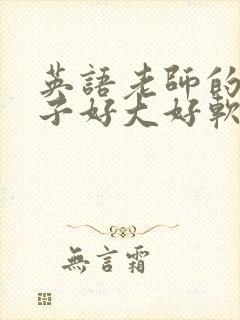 英語老師的
子好大好軟
無言霜